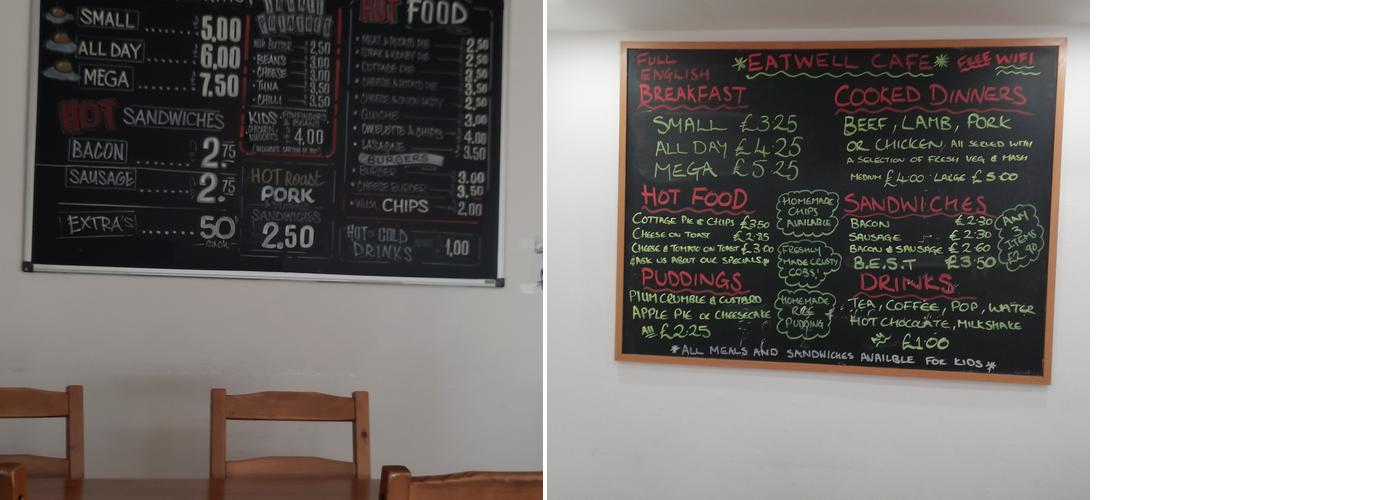 SMALL ...... 5,00
ALL DAY .... 6,00
MEGA ...... 7,50
HOT SANDWICHES
BACON ...... 2.75
SAUSAGE ..... 2.75
EXTRA'S ..... 50
each
BEANS 3,00
CHEESE 3,00
TUNA 3,50
CHILLI 3,50
KIDS
4,00
HOT Roast
PORK
SANDWICHES
2.50
HOT FOOD
MEAT & POTATO PIE 2,50
STEAK & KIDNEY PIE 2,50
COTTAGE PIE
CHEESE & POTATO PIE
CHEESE & ONION PASTY
QUICHE
OMELETTE & CHIPS
LASAGNE
BURGERS
BURGER 3.00
CHEESE BURGER 3,50
CHIPS 2,00
HOT or COLD
DRINKS 1,00
FULL
ENGLISH
BREAKFAST
SMALL £3.25
ALL DAY £4.25
MEGA £5.25
*EATWELL CAFE*
FREE WIFI
COOKED DINNERS
BEEF, LAMB, PORK
OR CHICKEN. All SERVED WITH
A SELECTION OF FRESH VEG & MASH
MEDIUM £4.00 LARGE £5.00
HOT FOOD
COTTAGE PIE & CHIPS £3.50
CHEESE ON TOAST £2.85
CHEESE & TOMATO ON TOAST £3.00
*ASK US ABOUT OUR SPECIALS*
HOMEMADE
CHIPS
AVAILABLE
FRESHLY
MADE CRUSTY
COBS!
HOMEMADE
RICE
PUDDING
SANDWICHES
BACON £2.30
SAUSAGE £2.30
BACON & SAUSAGE £2.60
B.E.S.T £3.50
ANY
3
ITEMS
£2.90
PUDDINGS
PLUM CRUMBLE & CUSTARD
APPLE PIE or CHEESECAKE
All £2.25
DRINKS
TEA, COFFEE, POP, WATER
HOT CHOCOLATE, MILKSHAKE
All £1.00
*ALL MEALS AND SANDWICHES AVAILBLE FOR KIDS*